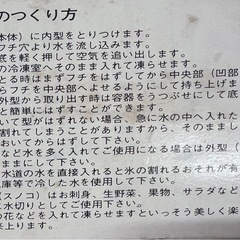 のつくり方
本体）に内型をとりつけます。
フチ穴より水を流し込みます。
底を軽く押して空気を追い出します。
の冷凍室へそのまま入れて凍らせます。
とる時はまずフチをはずしてから中央部（凹部
らフチを中央部へよせるようにして持ち上げま
外型から取り出す時は容器をうつぶせにして底
と押します。
型がはずれない場合、急に水の中へ入れ
割れてしまうことがありますから、そのまま
おいてからはずして下さい。
など水を多く入れてご使用になる場合は外型（
ままはずさずにご使用下さい。
水道の水を直接入れると氷の割れるおそれが有
庫等で冷した水を使用して下さい。
（スノコ）はお刺身、生野菜、果物、サラダなど
に水切りとしてご使用下さい。
の花などを入れて凍らせますといっそう美しく楽
来上ります。